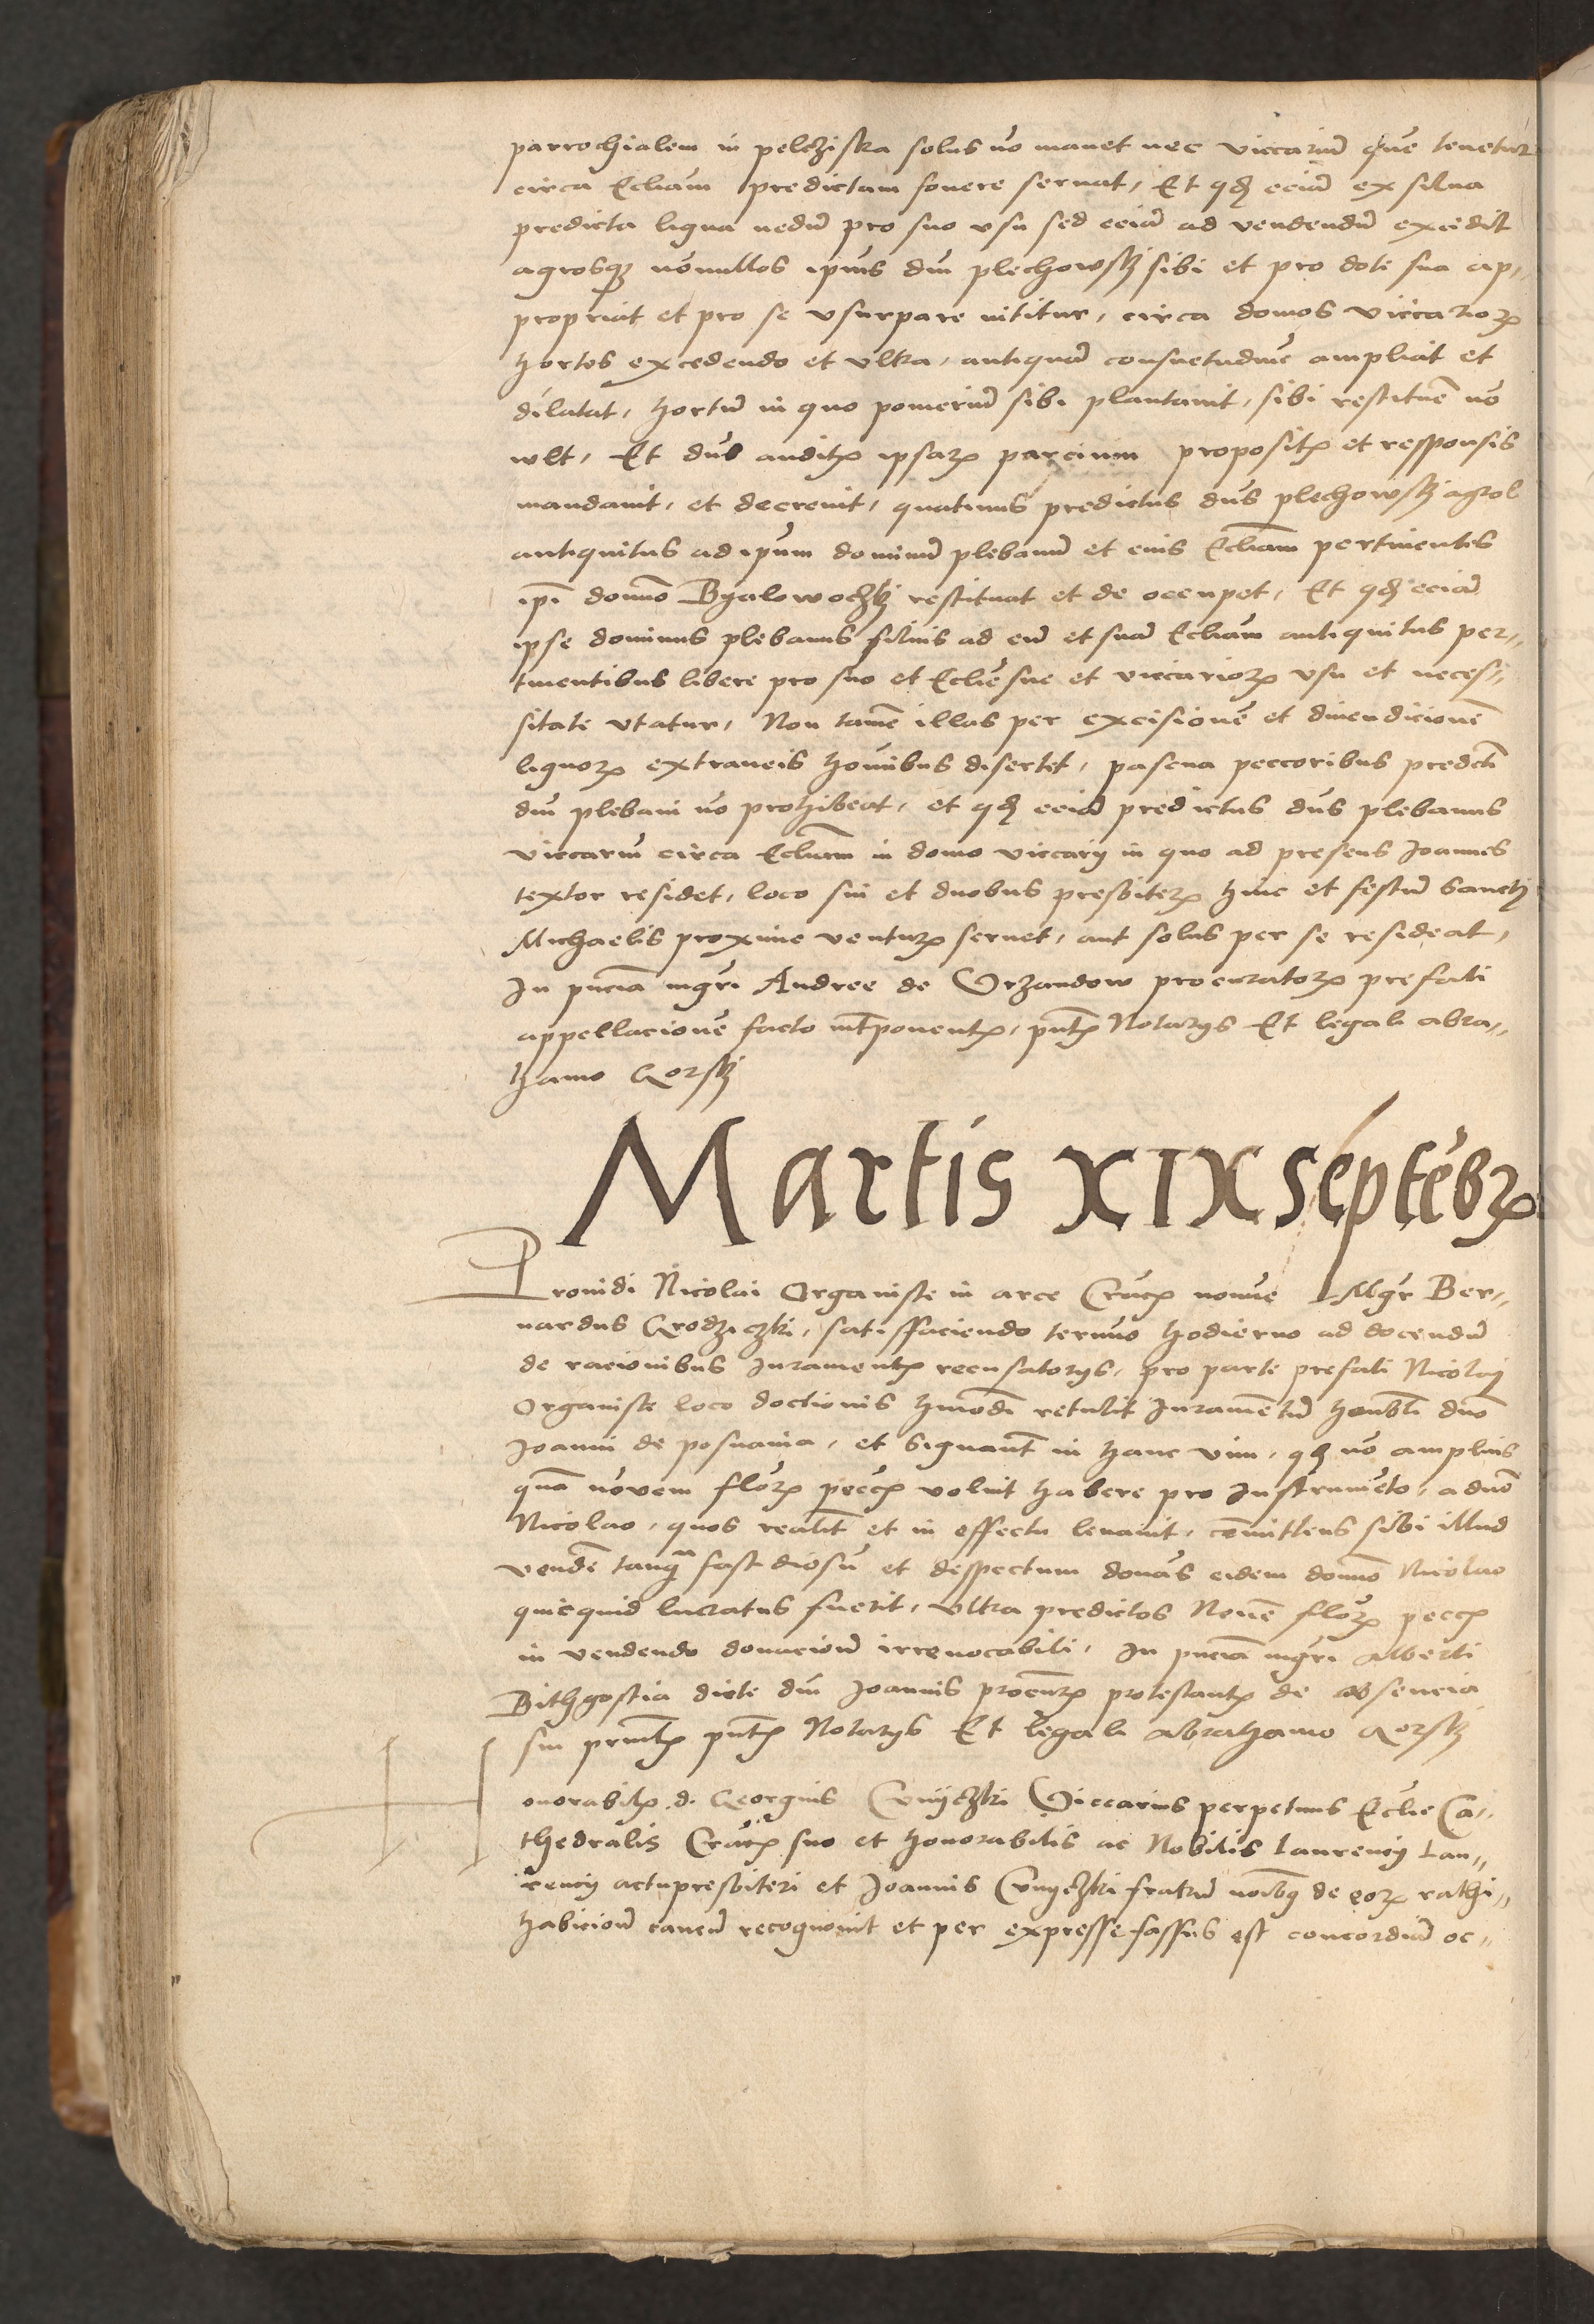 parrochialem in pelcziska solus nō manet nec viccariū quē tenetur
circa Eccliam predictam fovere servat, Et qz eciā ex silva
predicta ligna nedū pro suo usu sed eciā ad vendendū excēdit
agrosqz nōnullos ipius dni plechowskj sibi et pro dote sua ap„
propriat et pro se vsurpare nititur, circa domos viccarioꝝ
hortos excedendo et vltra, antiquā consuetudinē ampliat et
dilatat, hortū in quo pomeriū sibi plantavit, sibi restituē nō
wlt, Et dns auditꝭ ipsaꝝ parcium propositꝭ et responsis
mandavit, et decrevit, quatinus predictus dns plechowskj agros
antiquitus ad ipum dominū plebanū et eius Eccliam pertinentes
ipi domno Byalowoczkj restituat et de occupet, Et qz eciā
ipse dominus plebanus silvis ad eū et suā Eccliam antiquitus per„
tinentibus libere pro suo et Ecclie sue et viccarioꝝ vsu et neces„
sitate vtatur, Non tamē illas per excisionē et divendicionē
lignoꝝ extraneis hoīnibus disertet, pascua peccoribus predcti
dni plebani nō prohibeat, et qz eciā predictus dns plebanus
viccariū circa Eccliam in domo viccarij in quo ad presens Joannes
textor residet, loco sui et duobus presbiteꝝ hinc et festū sanctj
Michaelis proxime ventuꝝ servet, aut solus per se resideat,
In pncia mgri Andree de Vrzandow procuratoꝝ prefati
appellacionē facto intponentꝭ, pntꝭ Notarijs Et legali abra„
hamo Gorskj
Martis XIX septēbꝝ
Providi Nicolai Organiste in arce Cracꝭ nomīe Mgr Ber„
nardus Grodziczki, satisffaciendo termīo hodierno ad docendū
de racionibus Juramentꝭ recusatorijs, pro parte prefati Nicolaj
Organiste loco doctionis hmodi retulit Juramentū honbli dno
Joanni de posnania, et signant in hanc vim, qz nō amplius
quā novem floꝝ peccꝭ voluit habere pro Instrumēto, a dno
Nicolao, quos realit et in effectu levavit, cōmittens sibi illud
vendē tanqm fastidiosū et despectum donās eidem domno Nicolao
quicquid lucratus fuerit, vltra predictos Novē floꝝ peccꝭ
in vendendo donacionē irrevocabili, In pncia mgri Alberti
Bithgostia dicte dni Joannis procurꝭ protestantꝭ de absencia
sui prinlꝭ pntꝭ Notarijs Et legali abrahamo Gorskj
Honorabilꝭ d. Georgius Crnijczki Viccarius perpetuus Ecclie Ca„
thedralis Cracꝭ suo et honorabilis ac Nobilis Laurencij Lau„
rencij actupresbiteri et Joannis Crnijczki fratrū noībz de eoꝝ rathi„
habicionē cavenī recognovit et per expresse fassus est concordiā oc„